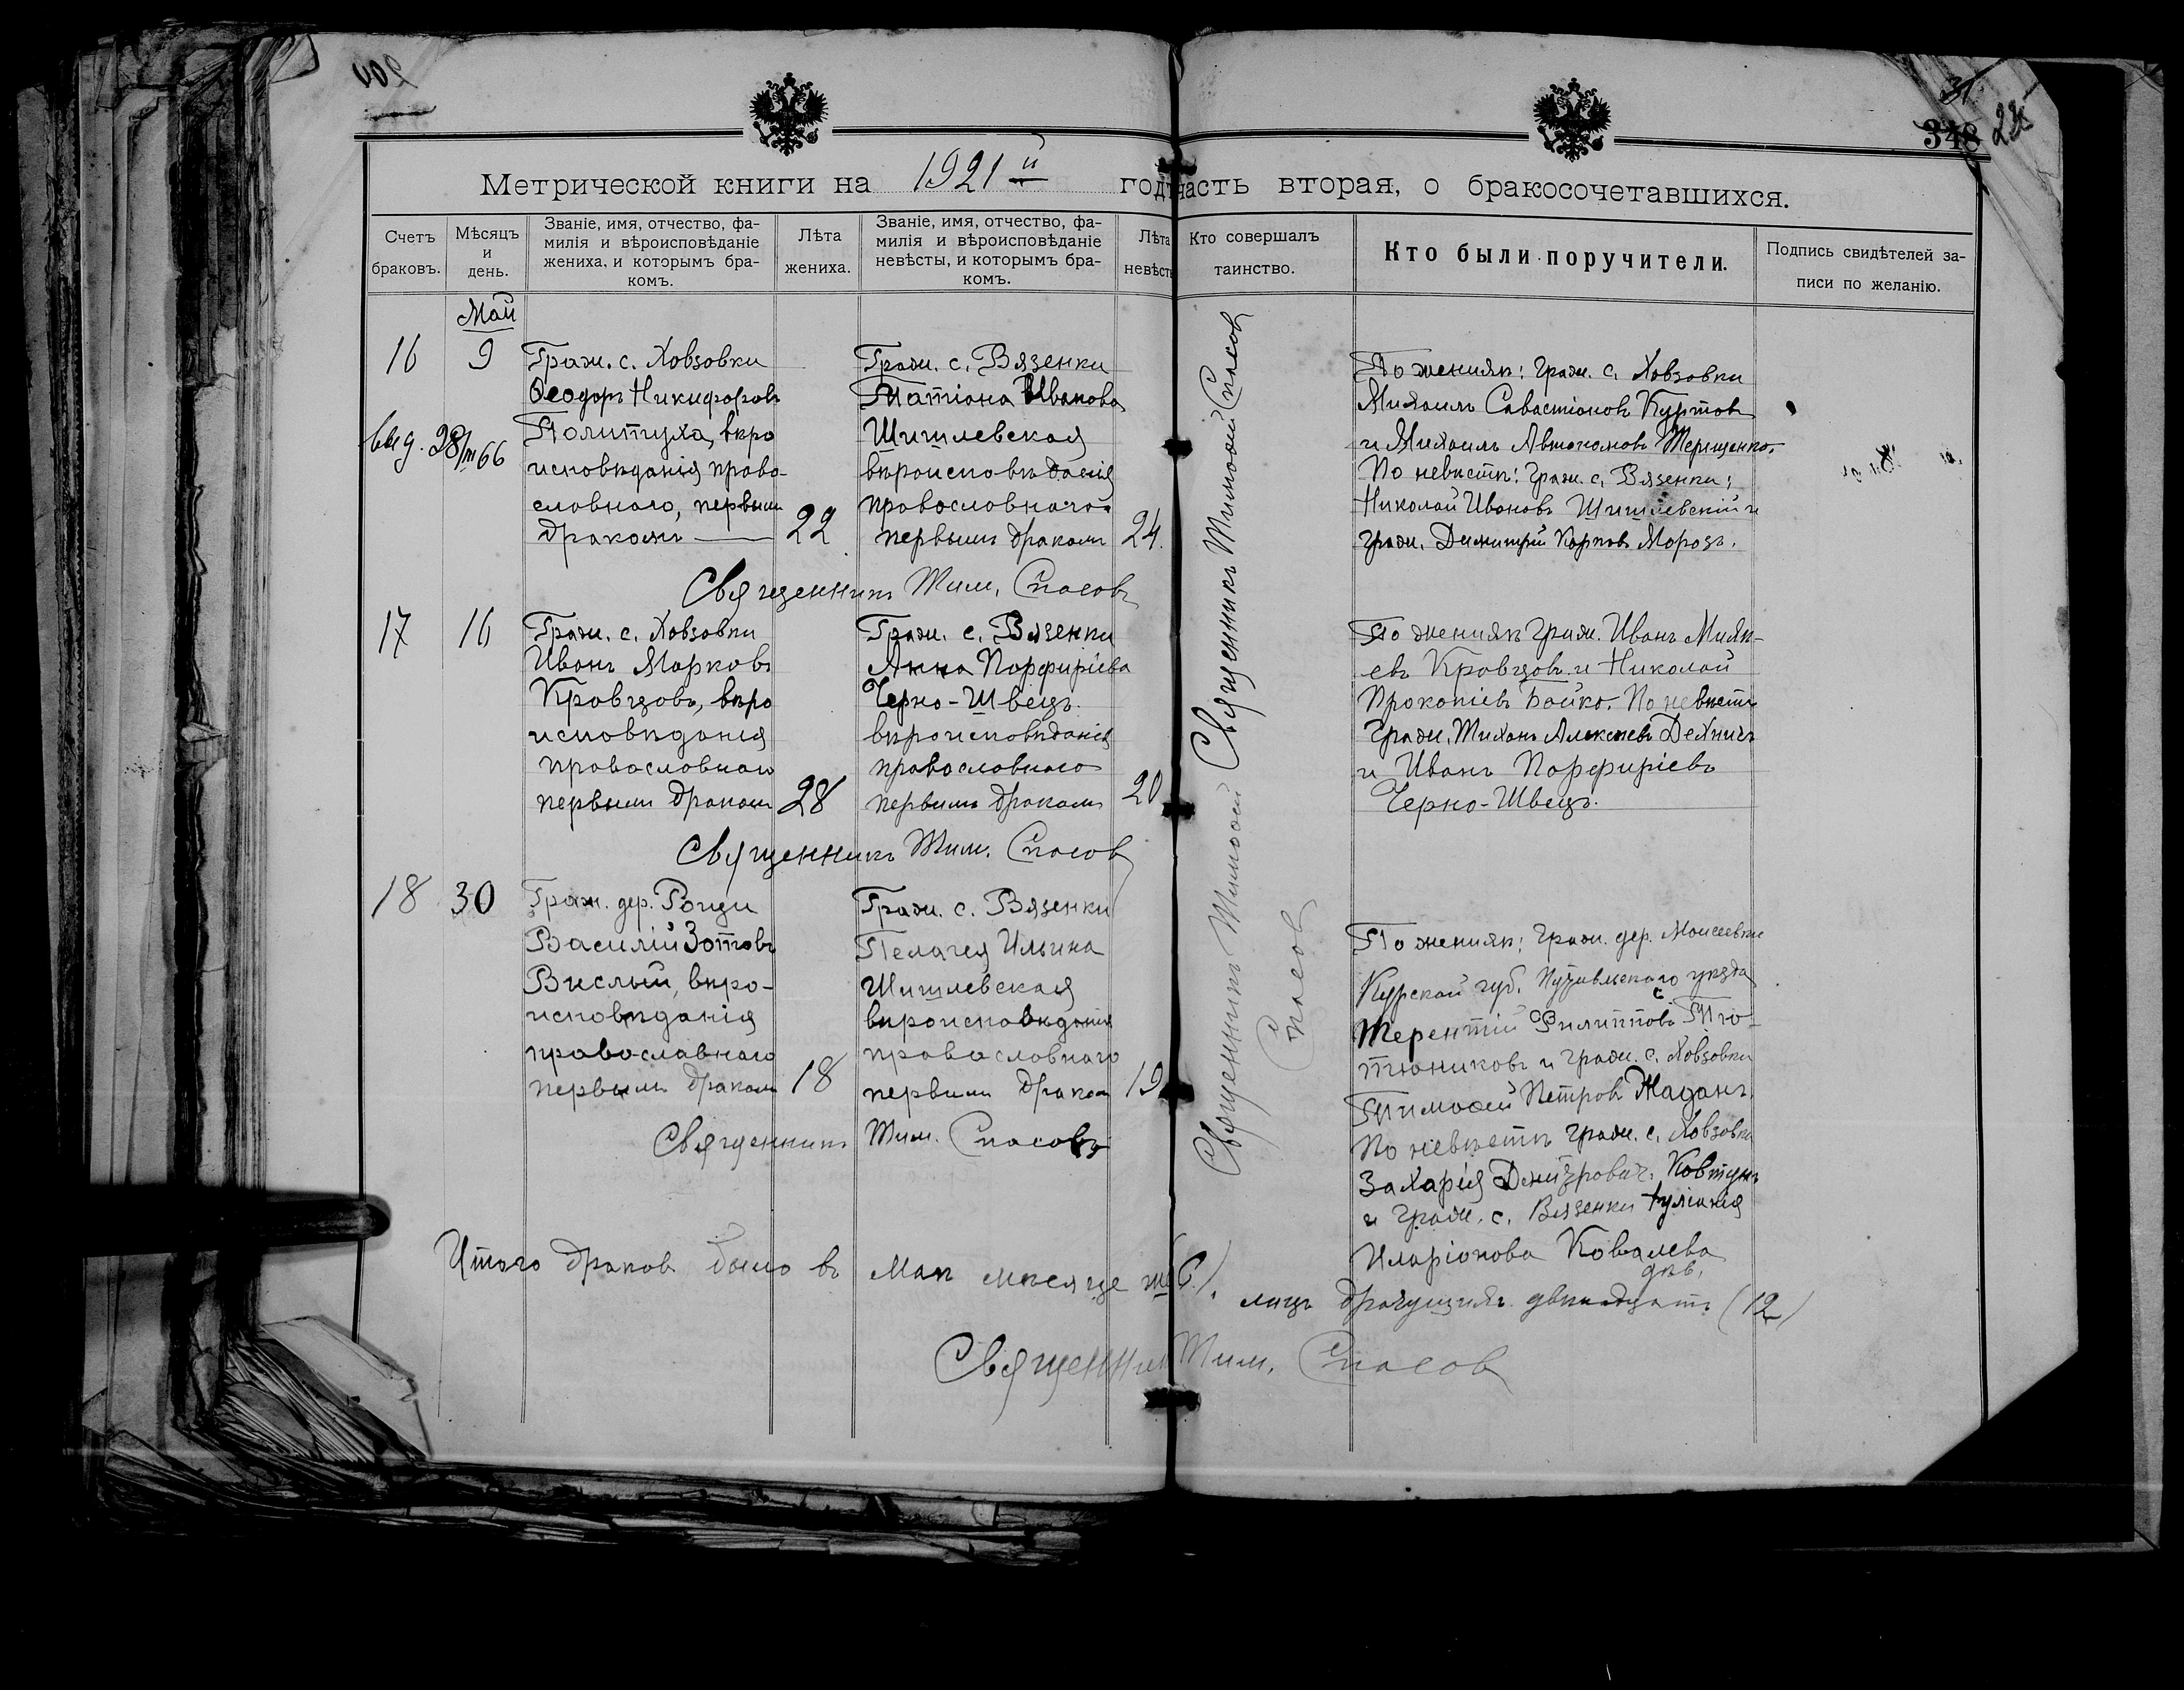 348
31
Метрической книги на 1921 й год
часть вторая, о бракосочетавшихся.
Счетъ
браковъ.
Мѣсяцъ
и
день.
Званіе, имя, отчество, фа-
милія и вѣроисповѣданіе
жениха, и которымъ бра-
комъ.
Лѣта
жениха.
Званіе, имя, отчество, фа-
милія и вѣроисповѣданіе
невѣсты, и которымъ бра-
комъ.
Лѣта
невѣсты
Кто совершалъ
таинство.
Кто были поручители.
Подпись свидѣтелей за-
писи по желанію.
Май
16
9
выд. 28/III 66
Граж. с. Ховзовки
Ѳеодоръ Никифоровъ
Политуха, вѣро
исповѣданія право-
славнаго, первымъ
бракомъ
22
Граж. с. Вязенки
Татіана Иванова
Шишлевская
вѣроисповѣданія
православнаго
первымъ бракомъ
24.
По женихѣ: Граж. с. Ховзовки
Михаилъ Савастіоновъ Куртовъ
и Михаилъ Автономовъ Терещенко.
По невѣстѣ: Граж. с. Вязенки:
Николай Ивановъ Шишлевскій и
граж. Димитрій Карповъ Морозъ.
Священникъ Тимоѳей Спасовъ
Священникъ Тим. Спасовъ
17
16
Граж. с. Ховзовки
Иванъ Марковъ
Кравцовъ, вѣро
исповѣданія
православнаго
первымъ бракомъ
28
Граж. с. Вязенки
Анна Порфиріева
Черно-Швецъ.
вѣроисповѣданія
православнаго
первымъ бракомъ
20
По женихѣ Граж. Иванъ Михѣ-
евъ Кравцовъ и Николай
Прокопіевъ Бойко. По невѣстѣ
Граж. Тихонъ Алексѣевъ Дехничъ
и Иванъ Порфиріевъ
Черно-Швецъ.
Священникъ Тим. Спасовъ
18
30
Граж. дер. Рощи
Василій Зотовъ
Вислый, вѣро-
исповѣданія
православнаго
первымъ бракомъ
18
Граж. с. Вязенки
Пелагея Ильина
Шишлевская
вѣроисповѣданія
православнаго
первымъ бракомъ
19
Священникъ Тимоѳей
Спасовъ
По женихѣ: Граж. дер. Моисеевки
Курской губ. Путивльскаго уѣзда
Терентій Филипповъ Тю-
тюниковъ и граж. с. Ховзовки
Тимоѳей Петровъ Жаданъ.
По невѣстѣ граж. с. Ховзовки
Захарія Ковтунъ
и Граж. с. Вязенки Іуліанія
Иларіонова Ковалева
дѣв.
Священникъ Тим. Спасовъ
Итого браковъ было въ Маѣ мѣсяцѣ (6).
лицъ двѣнадцать (12)
Священникъ Тим. Спасовъ